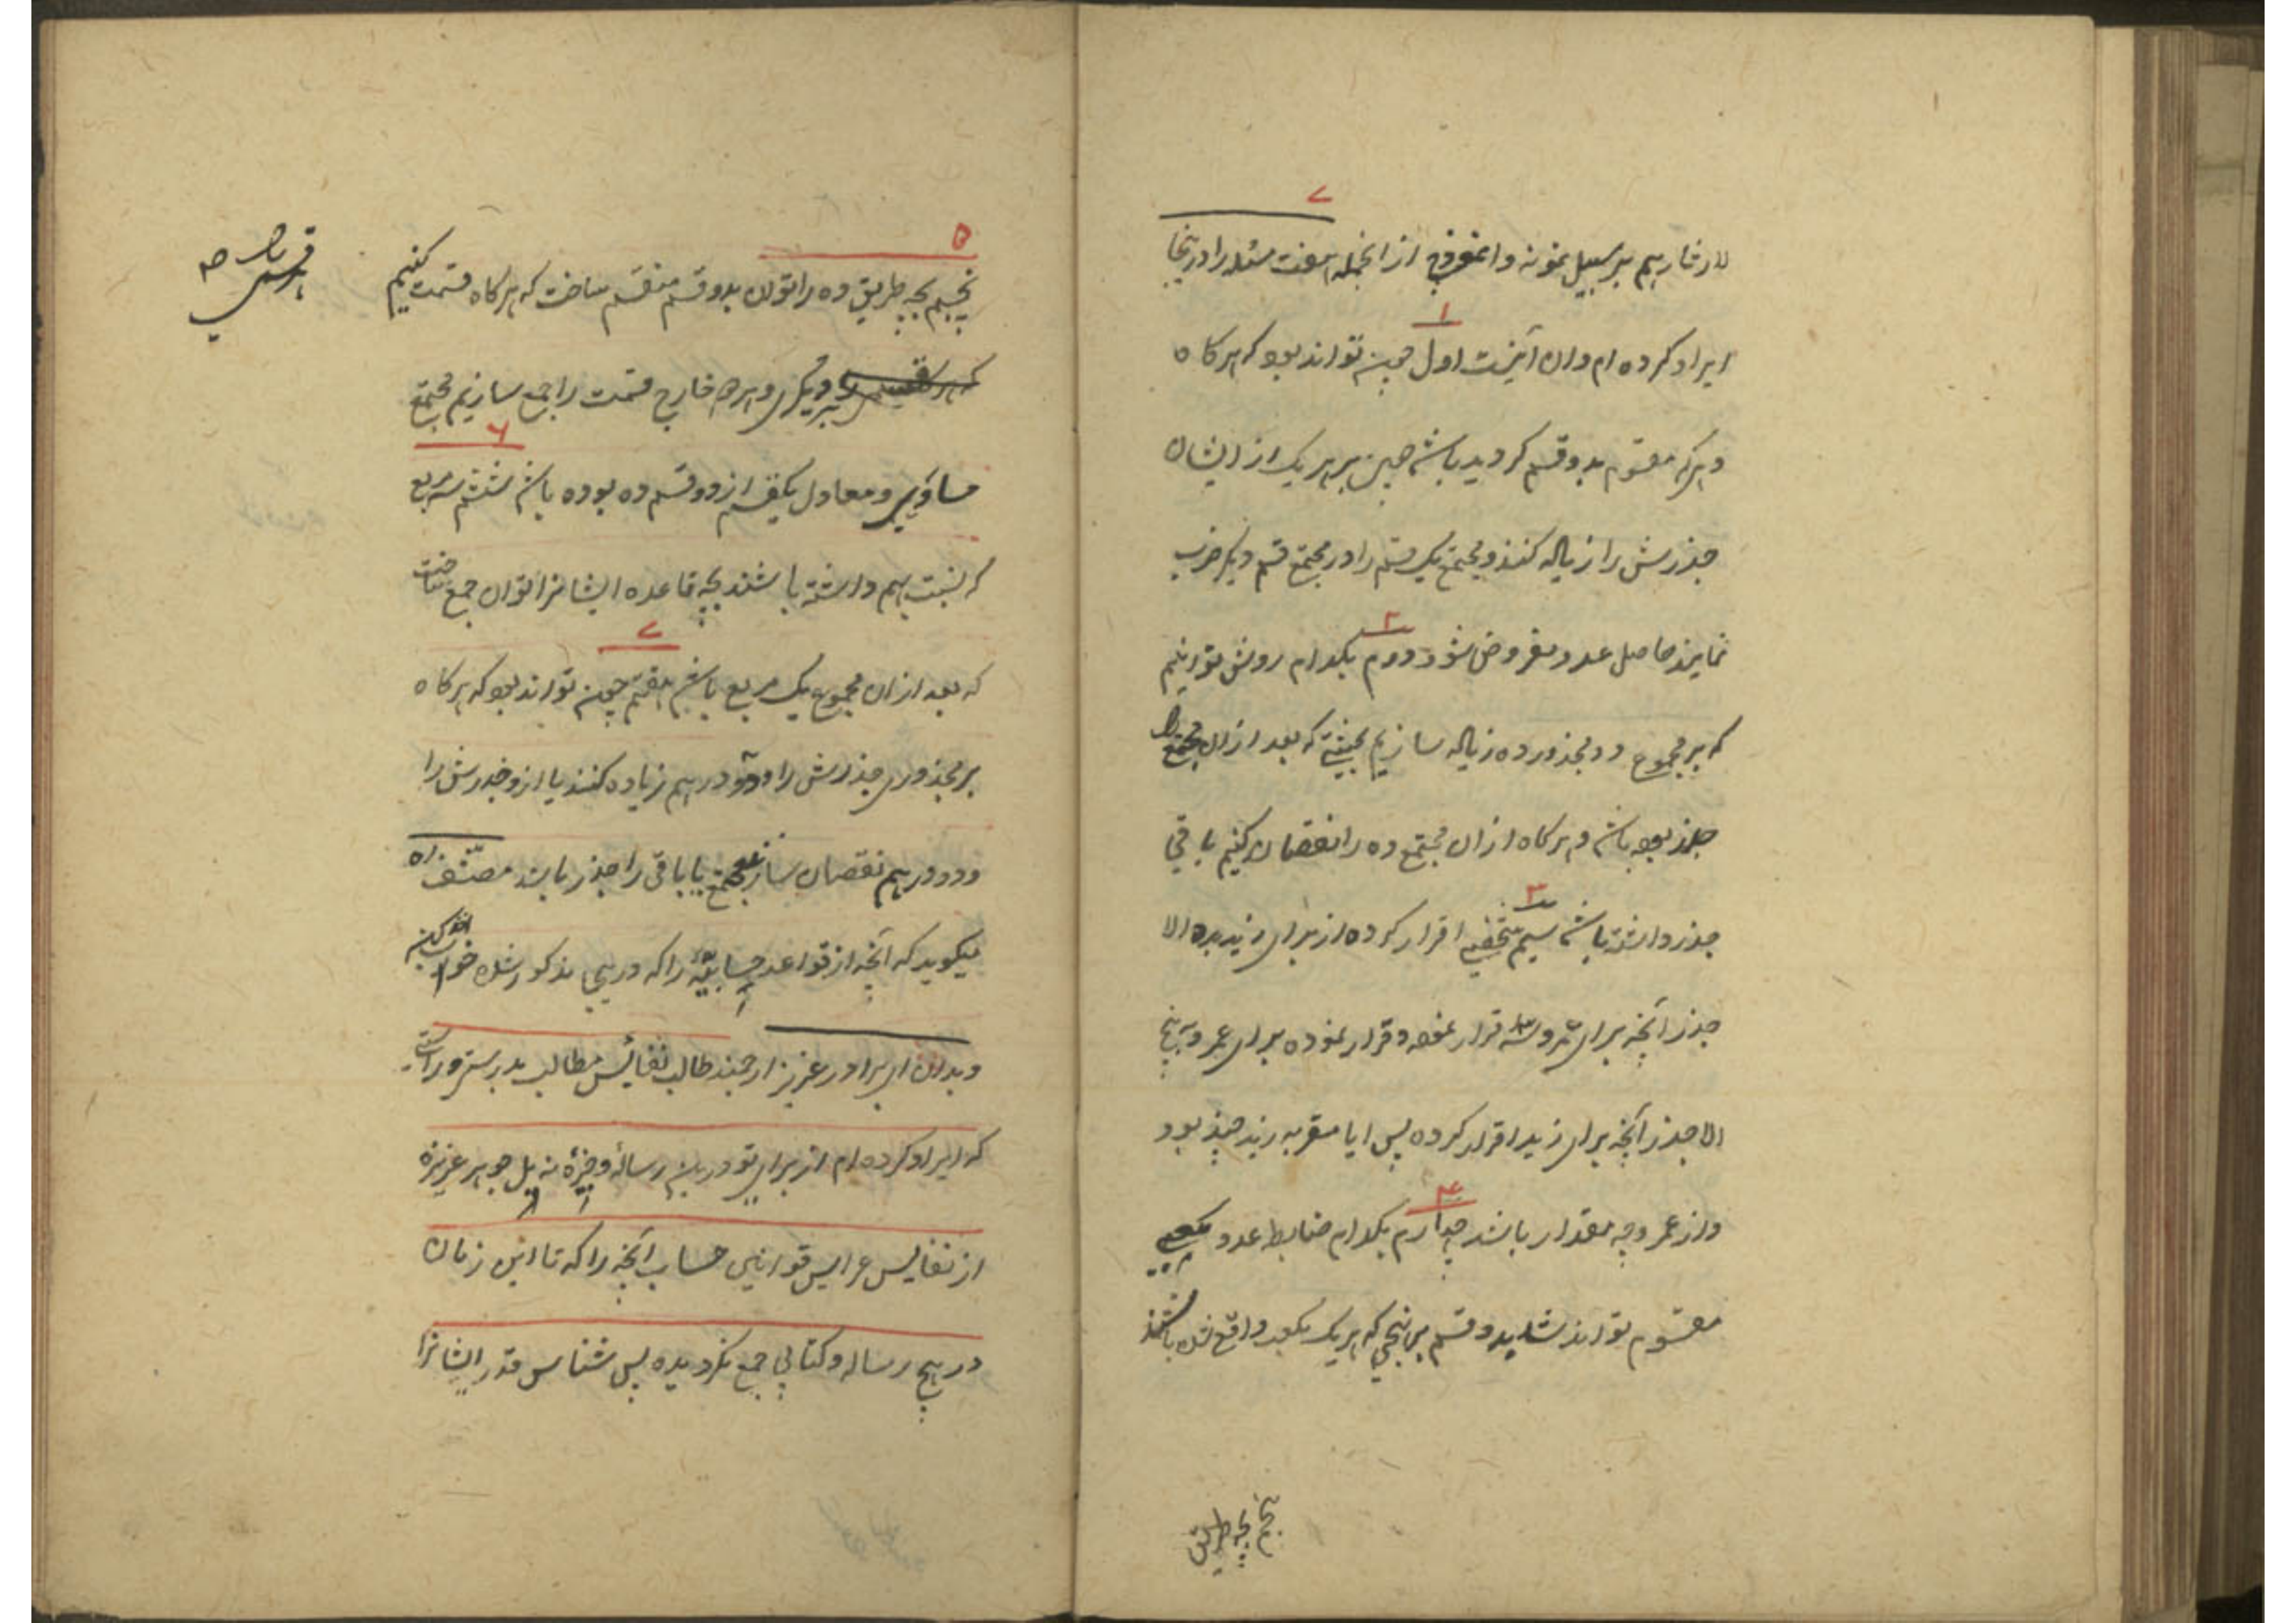 ۷
لارغا ریم بر سبیل نمونه و انموذج از انجمله هفت مسئله را در اینجا
۱
ایراد کرده ام و ان اینست اول چون تواند بود که هرکاه
ده را که مقسوم بدو قسم کردید باشد چنین بر هر یک از ایشان
جذرش را زیاله کنند و مجتمع یک قسم را در مجتمع قسم دیکر ضرب
۲
نمایند حاصل عدد مفروض شود دویم بکدام روش توانیم
که بر مجموع دو مجذور ده زیاله سازیم بحیثیتی که بعد از ان مجتمع را
جذر بود باشد و هرکاه از ان مجتمع ده را نقصان کنیم باقی
۳
جذر داشته باشد سیم شخصی اقرار کرده از برای زید بده الا
جذر آنچه برای عمرو قرار نموده و قرار نموده برای عمرو به پنج
الا جذر آنچه برای زید اقرار کرده پس ایا مقر به زید چند بود
۴
و از عمرو چه مقدار باشد چهارم بکدام ضابط عدد مکعبی
مقسوم تواند شد بدو قسم بر نهجی که هر یک مکعب واقع شده باشند
پنجم بچه طریق
۵
پنجم بچه طریق ده را توان بدو قسم منقسم ساخت که هرکاه قسمت کنیم
هر قسمی را بر
دیکری و هر دو خارج قسمت را جمع سازیم مجتمع
۶
مساوی و معادل یکقسم از دو قسم ده بوده باشد ششم سه مربع
که نسبت بهم داشته باشند بچه قاعده ایشانرا توان جمع ساخت
۷
که بعد از ان مجموع یک مربع باشد هفتم چون تواند بود که هرکاه
بر مجذوری جذرش را و دو درهم زیاده کنند یا ازو جذرش را
و دو درهم نقصان سازند مجتمع یا باقی را جذر باشد مصنف ره
میکوید که آنچه از قواعد حسابیه را که در اینجا مذکور شده
و بدان ای برادر عزیز ارجمند طالب نفائس مطالب بدرستی و راستی
که ایراد کرده ام از برای تو درین رساله وجیزه نه بل جوهر عزیزه
از نفایس عرایس قوانین حساب آنچه را که تا این زمان
در هیچ رساله و کتابی جمع نکردیده پس شناس قدر ایشانرا